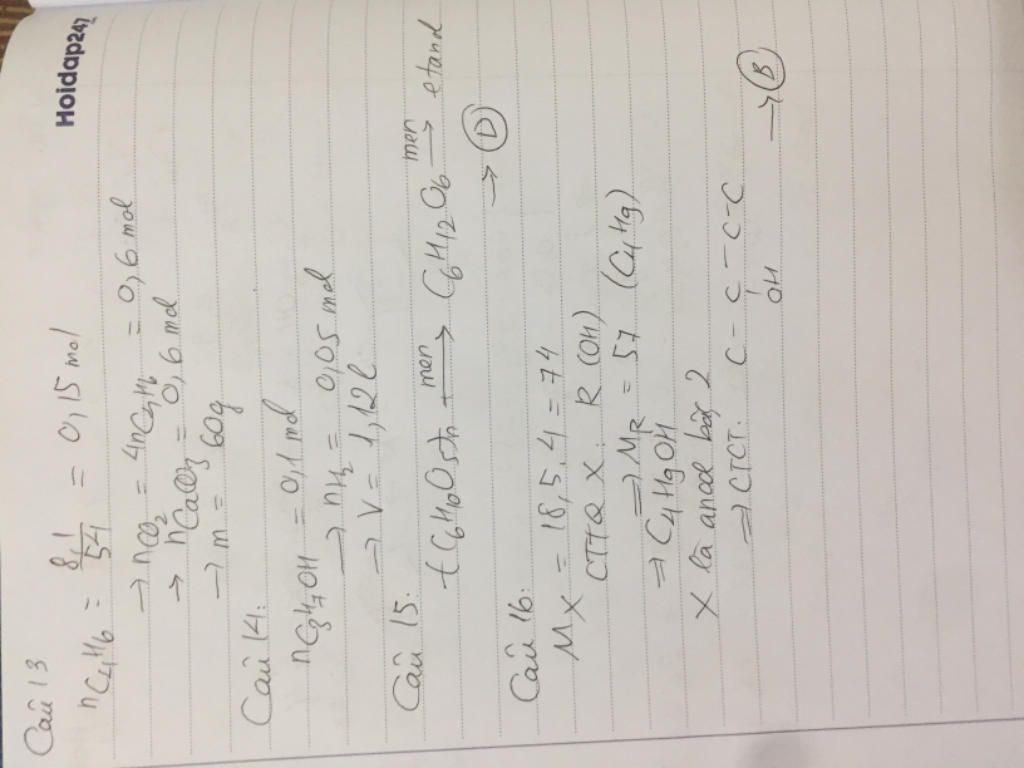 Hoidap247
Câu 13
nC4H6 = 8,1/54 = 0,15 mol
→ nCO2 = 4nC4H6 = 0,6 mol
→ nCaCO3 = 0,6 mol
→ m = 60g
Câu 14:
nC3H7OH = 0,1 mol
→ nH2 = 0,05 mol
→ V = 1,12 l
Câu 15.
(C6H10O5)n men→ C6H12O6 men→ etanol
→ D
Câu 16:
MX = 18,5.4 = 74
CTTQ X: R(OH)
⇒ MR = 57 (C4H9)
⇒ C4H9OH
X là ancol bậc 2
⇒ CTCT: C - C - C - C
OH
→ B